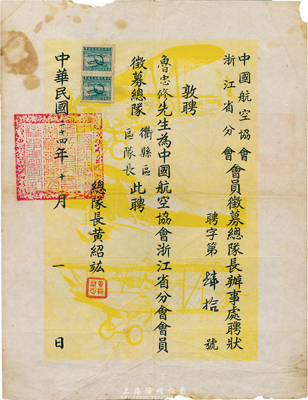 中國航空協會會員徵募總隊長辦事處聘狀
浙江省分會
聘字第肆拾號
敦聘
魯忠修先生為中國航空協會浙江省分會會員
徵募總隊衢縣區區隊長此聘
總隊長黃紹竑
中華民國二十四年十月一日